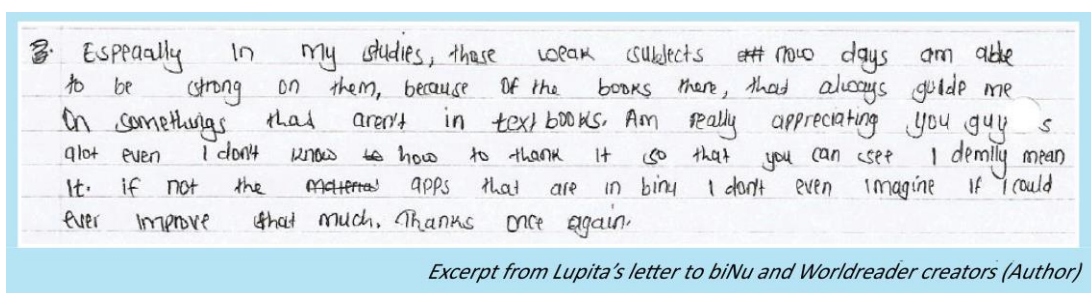 3. Espeacally in my studies, those weak subjects now days am able
to be strong on them, because of the books there, that always guide me
On somethings that aren't in text books. Am really appreciating you guys
alot even I don't know to how to thank it so that you can see I demily mean
It. if not the material apps that are in binu I don't even imagine if I could
ever improve that much. Thanks once again.
Excerpt from Lupita's letter to biNu and Worldreader creators (Author)